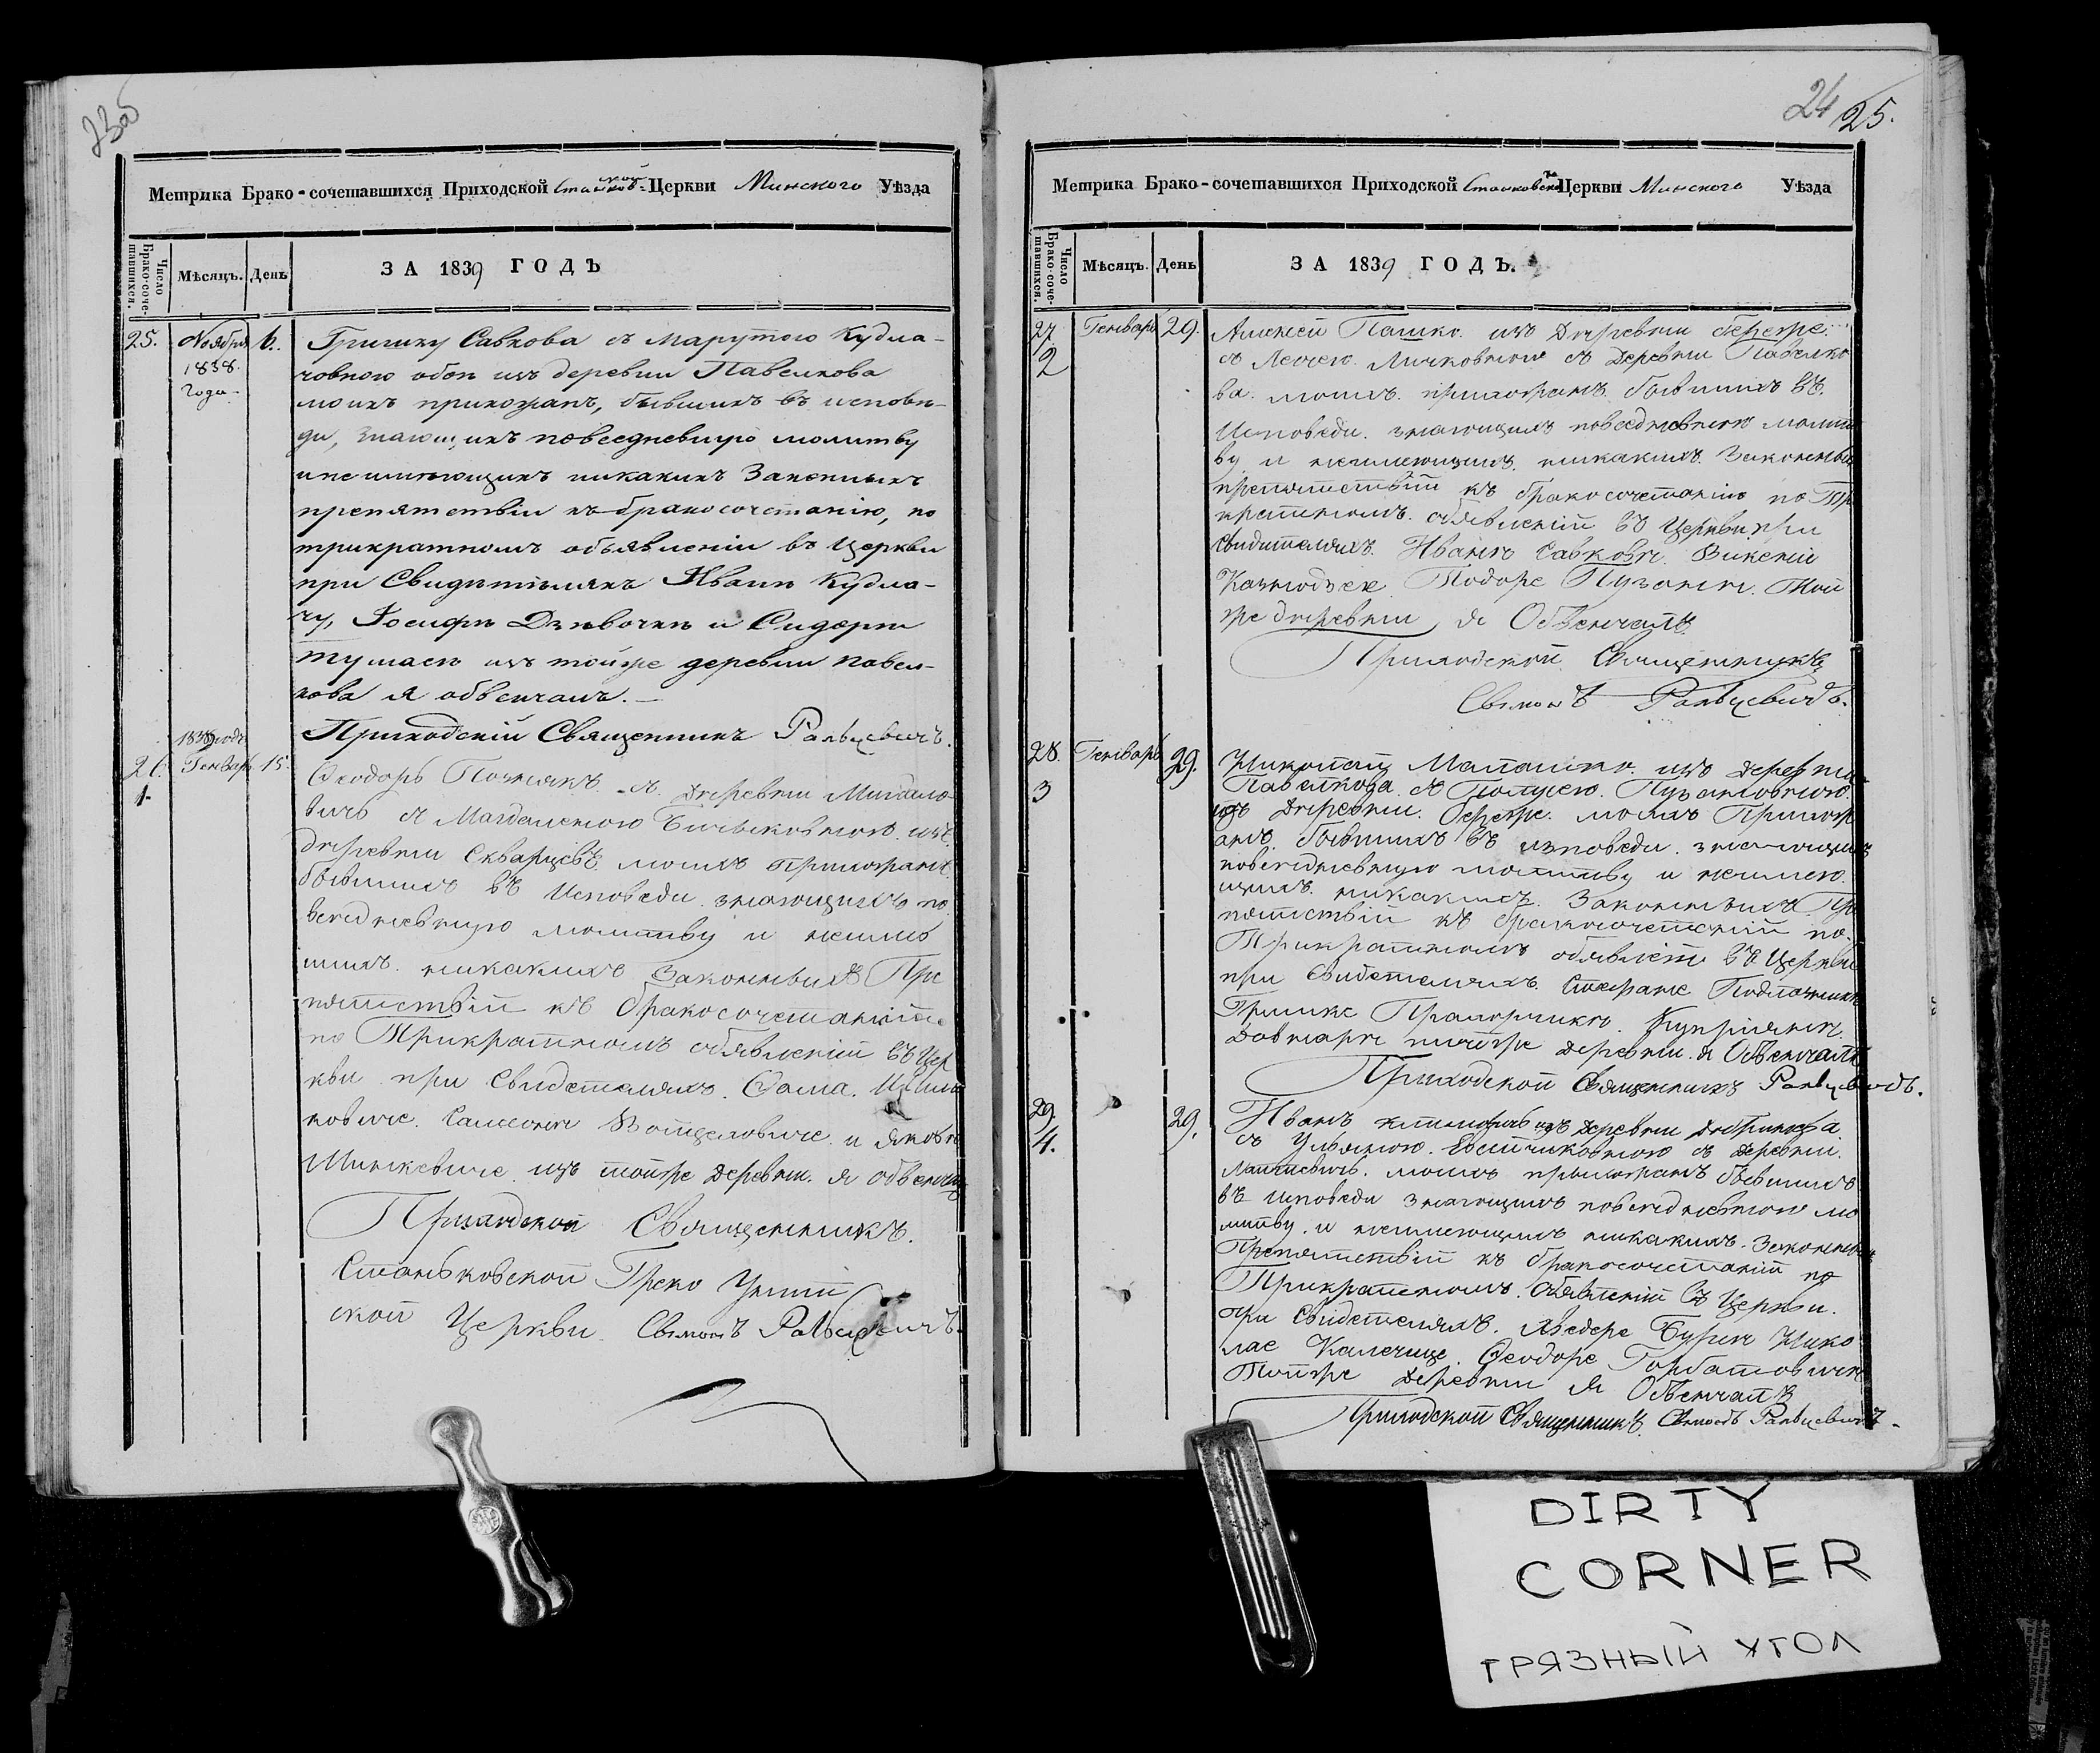 23об
Метрика Брако-сочетавшихся Приходской Станковской Церкви Минского Уѣзда
Число Брако-соче-тавшихся. Мѣсяцъ. День
ЗА 1839 ГОДЪ
25. Ноября 6. Гришку Савкова съ Марутою Кудла-
1838. човною обоп изъ деревни Павелкова
года моихъ прихожанъ, бывшихъ въ исповѣ-
ди, знающихъ повседневную молитву
и не имѣющихъ никакихъ Законныхъ
препятствіи къ бракосочетанію, по
трикратномъ объявленіи въ Церкви
при Свидѣтѣляхъ Иванѣ Кудла-
чу, Іосифѣ Дзѣвочкѣ и Сидорѣ
Тумаеѣ изъ тойже деревни Павел-
кова я обвенчалъ.
Приходскій Священникъ Ральцевичъ.
1839 годъ
26. Генварь 15. Ѳеодоръ Познякъ съ Деревни Михало-
1. вичъ съ Магдаленою изъ
Деревни Скварцевъ моихъ прихожанъ
бывшихъ въ Исповеди знающихъ по
вседневную молитву и неимѣ
щихъ никакихъ Законныхъ Пре
пятствій къ бракосочетаній
по Трикратномъ обявленій въ Цер
кви при Свидетеляхъ Ѳома
ковиче Самсони и Яковѣ
Минкевиче изъ тойже Деревни я обвенчалъ
Приходской Священникъ
Станьковской Греко Уніят
ской Церкви Сѵмонъ Ральцевичъ
24 25.
Метрика Брако-сочетавшихся Приходской Станковской Церкви Минского Уѣзда
Число Брако-соче-тавшихся. Мѣсяцъ. День
ЗА 1839 ГОДЪ.
27. Генварь 29. Алексей Пашко изъ Деревни Бережe
2 съ Личковною съ Деревни Павелко
ва моихъ прихожанъ бывшихъ въ
Исповеди знающихъ повседневною молит
ву и неимеющихъ никакихъ Законныхъ
препятствій къ бракосочетанію по Три
кратномъ обявленій въ Церкви при
Свидителяхъ Иванѣ Савкови Викентій
Тодоре Пузани Той
же деревни я Обвенчалъ
Приходской Священникъ
Сѵмонъ Ральцевичъ.
28. Генварь 29. Николай Малашко изъ Деревни
3 Павелкова съ Пузановною
изъ Деревни Береже моихъ Прихож
анъ бывшихъ въ исповеди знающихъ
повседневную молитву и неимею
щихъ никакихъ Законныхъ Пре
пятствій къ бракосочетаній по
Трикратномъ обявлени въ Церкви
при Свидетеляхъ
Гришке Прапорщики Купріяни
тойже деревни я Обвенчалъ
Приходской Священникъ Ральцевичъ.
29. 29. Иванъ изъ Деревни
4. съ Ульяною съ Деревни
моихъ прихожанъ бывшихъ
въ исповеди знающихъ повседневною мо
литву и неимеющихъ никакихъ Законныхъ
Препятствій къ бракосочетаній по
Трикратномъ Обявленій въ Церкви
при Свидетеляхъ Хведоре Бури Нико
лае Калечице Ѳеодоре Горбатовичи
Тойже Деревни я Обвенчалъ
Приходской Священникъ Сѵмонъ Ральцевичъ
DIRTY
CORNER
ГРЯЗНЫЙ УГОЛ